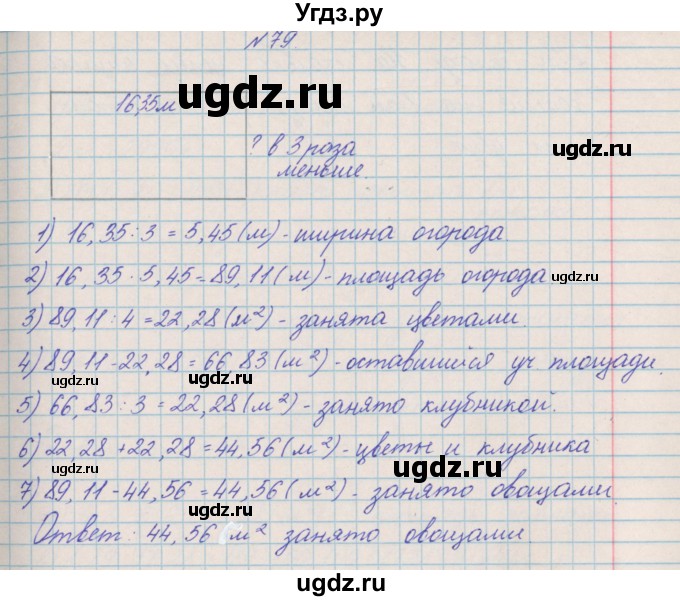 Угдз.ру
№79
16,35м
ugdz.ru
? в 3 раза
ugdz.ru
меньше.
1) 16,35:3=5,45(м)-ширина огорода
2) 16,35·5,45=89,11(м)-площадь огорода
ugdz.ru
ugdz.ru
3) 89,11:4=22,28(м²)-занята цветами.
4) 89,11-22,28=66,83(м²)-оставшийся уч площади.
ugdz.ru
5) 66,83:3=22,28(м²)-занято клубникой.
6) 22,28+22,28=44,56(м²)-цветы и клубника
ugdz.ru
ugdz.ru
7) 89,11-44,56=44,56(м²)-занято овощами.
ugdz.ru
Ответ: 44,56 (м² занято овощами
ugdz.ru
ugdz.ru